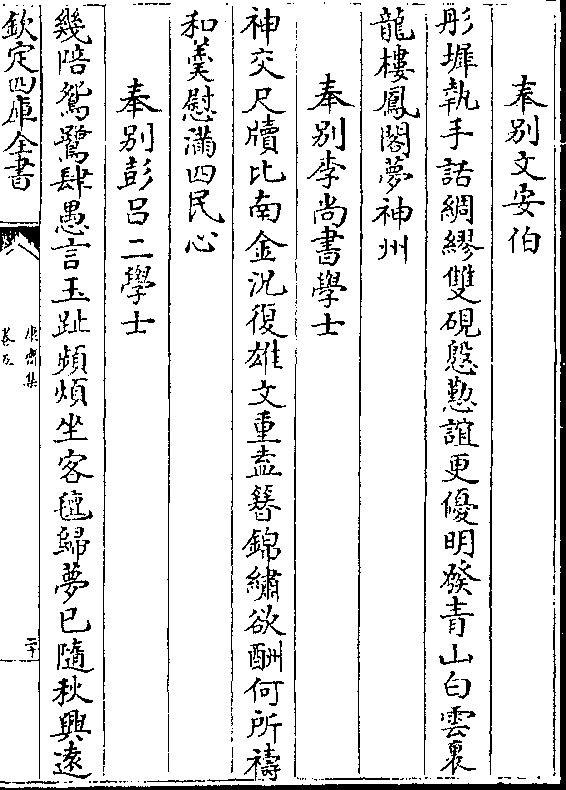 奉别文安伯
彤墀執手話綢繆雙硯慇懃誼更優明發青山白雲裏
龍樓鳳閣夢神州
奉别李尚書學士
神交尺牘比南金況復雄文重盍簪錦繡欲酬何所禱
和羹慰滿四民心
奉别彭吕二學士
幾陪鴛鷺肆愚言玉趾頻煩坐客氊歸夢已隨秋興遠
欽定四庫全書
康齋集
卷五
二十